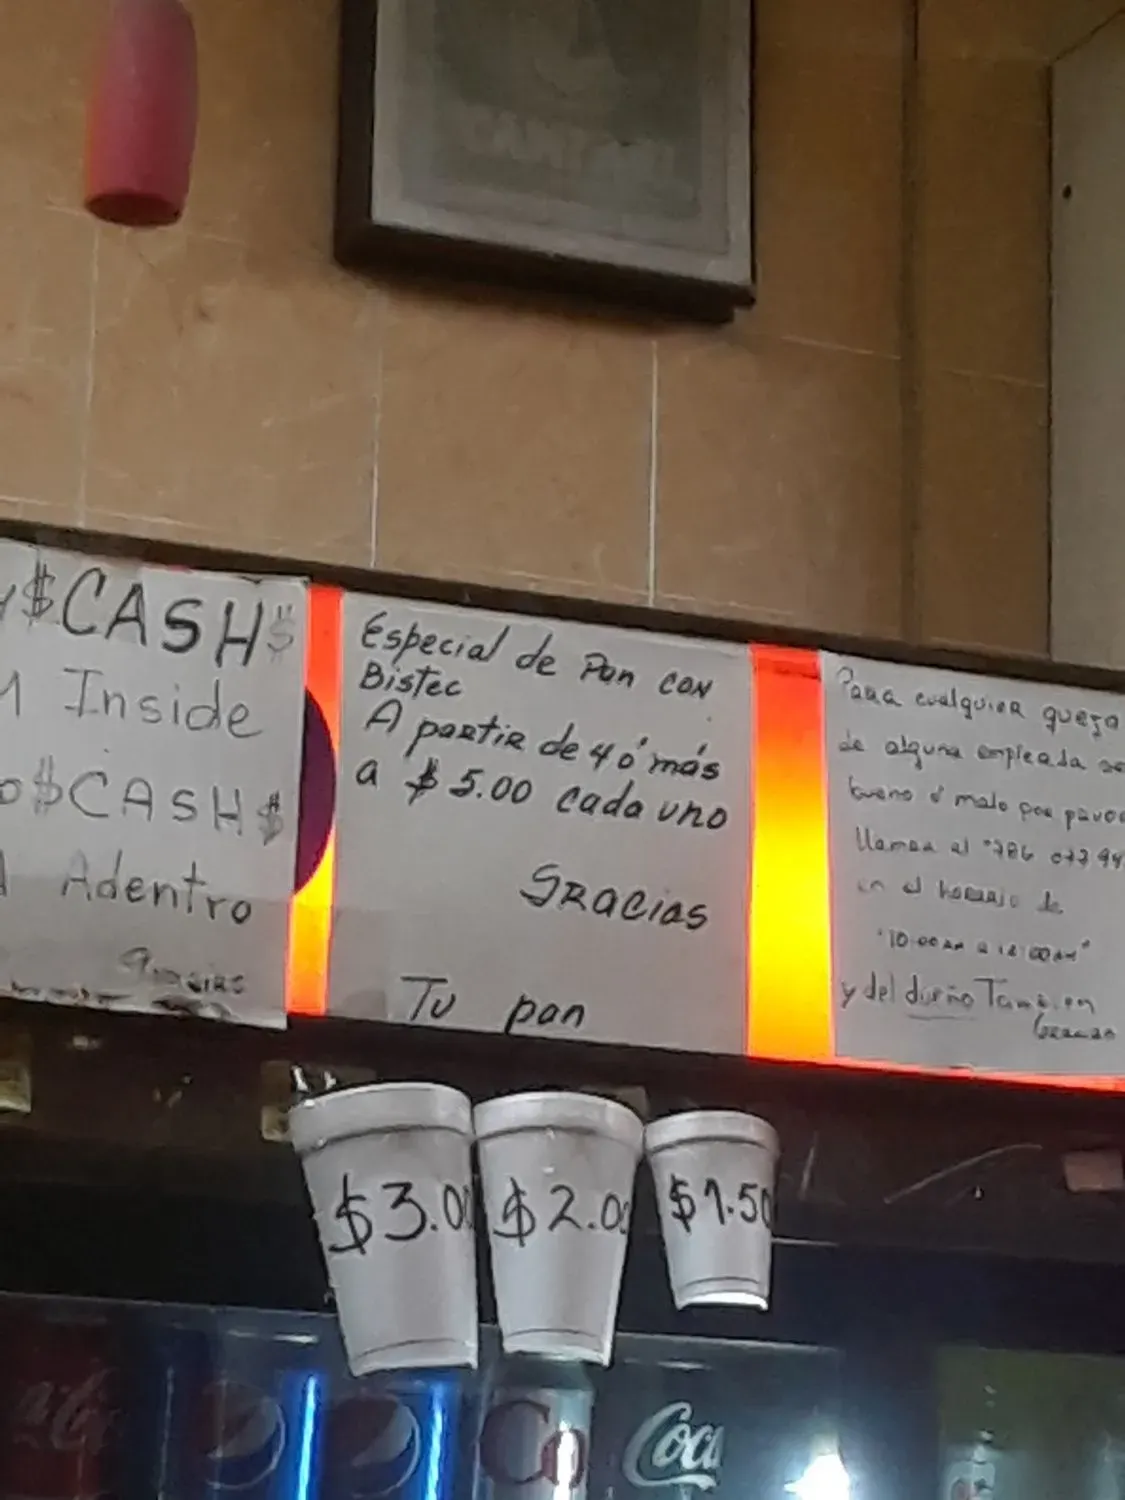 $CASH$
Inside
$CASH$
Adentro
Gracias
Especial de Pan con
Bistec
A partir de 4 ó más
a $5.00 cada uno
Gracias
Tu pan
Para cualquier queja
de alguna empleada
bueno ó malo por
llamar al 786
en el horario de
y del dueño También
Gracias
$3.00
$2.00
$1.50
Coca